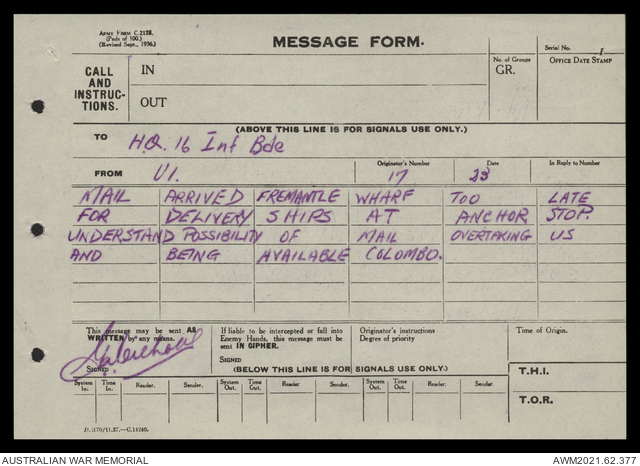 ARMY FORM C.2128.
(Pads of 100.)
(Revised Sept., 1936.)
MESSAGE FORM.
Serial No. 1
CALL AND INSTRUC-TIONS.
IN
OUT
No. of Groups
GR.
OFFICE DATE STAMP
(ABOVE THIS LINE IS FOR SIGNALS USE ONLY.)
TO H.Q. 16 Inf Bde
FROM U1. Originator's Number 17 Date 23 In Reply to Number
MAIL ARRIVED FREMANTLE WHARF TOO LATE
FOR DELIVERY SHIPS AT ANCHOR STOP.
UNDERSTAND POSSIBILITY OF MAIL OVERTAKING US
AND BEING AVAILABLE COLOMBO.
This message may be sent AS WRITTEN by any means.
SIGNED
If liable to be intercepted or fall into Enemy Hands, this message must be sent IN CIPHER.
SIGNED
Originator's instructions
Degree of priority
Time of Origin.
(BELOW THIS LINE IS FOR SIGNALS USE ONLY.)
T.H.I.
T.O.R.
System In. Time In. Reader. Sender. System Out. Time Out. Reader. Sender. System Out. Time Out. Reader. Sender.
AUSTRALIAN WAR MEMORIAL
AWM2021.62.377